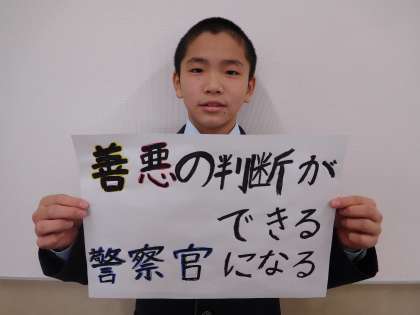 善悪の判断が
できる
警察官になる